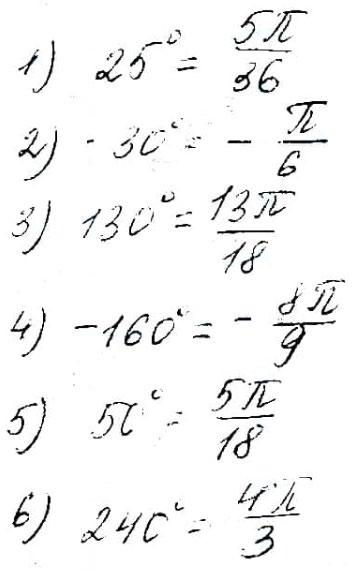 1) 25° = 5π/36
2) -30° = - π/6
3) 130° = 13π/18
4) -160° = - 8π/9
5) 50° = 5π/18
6) 240° = 4π/3